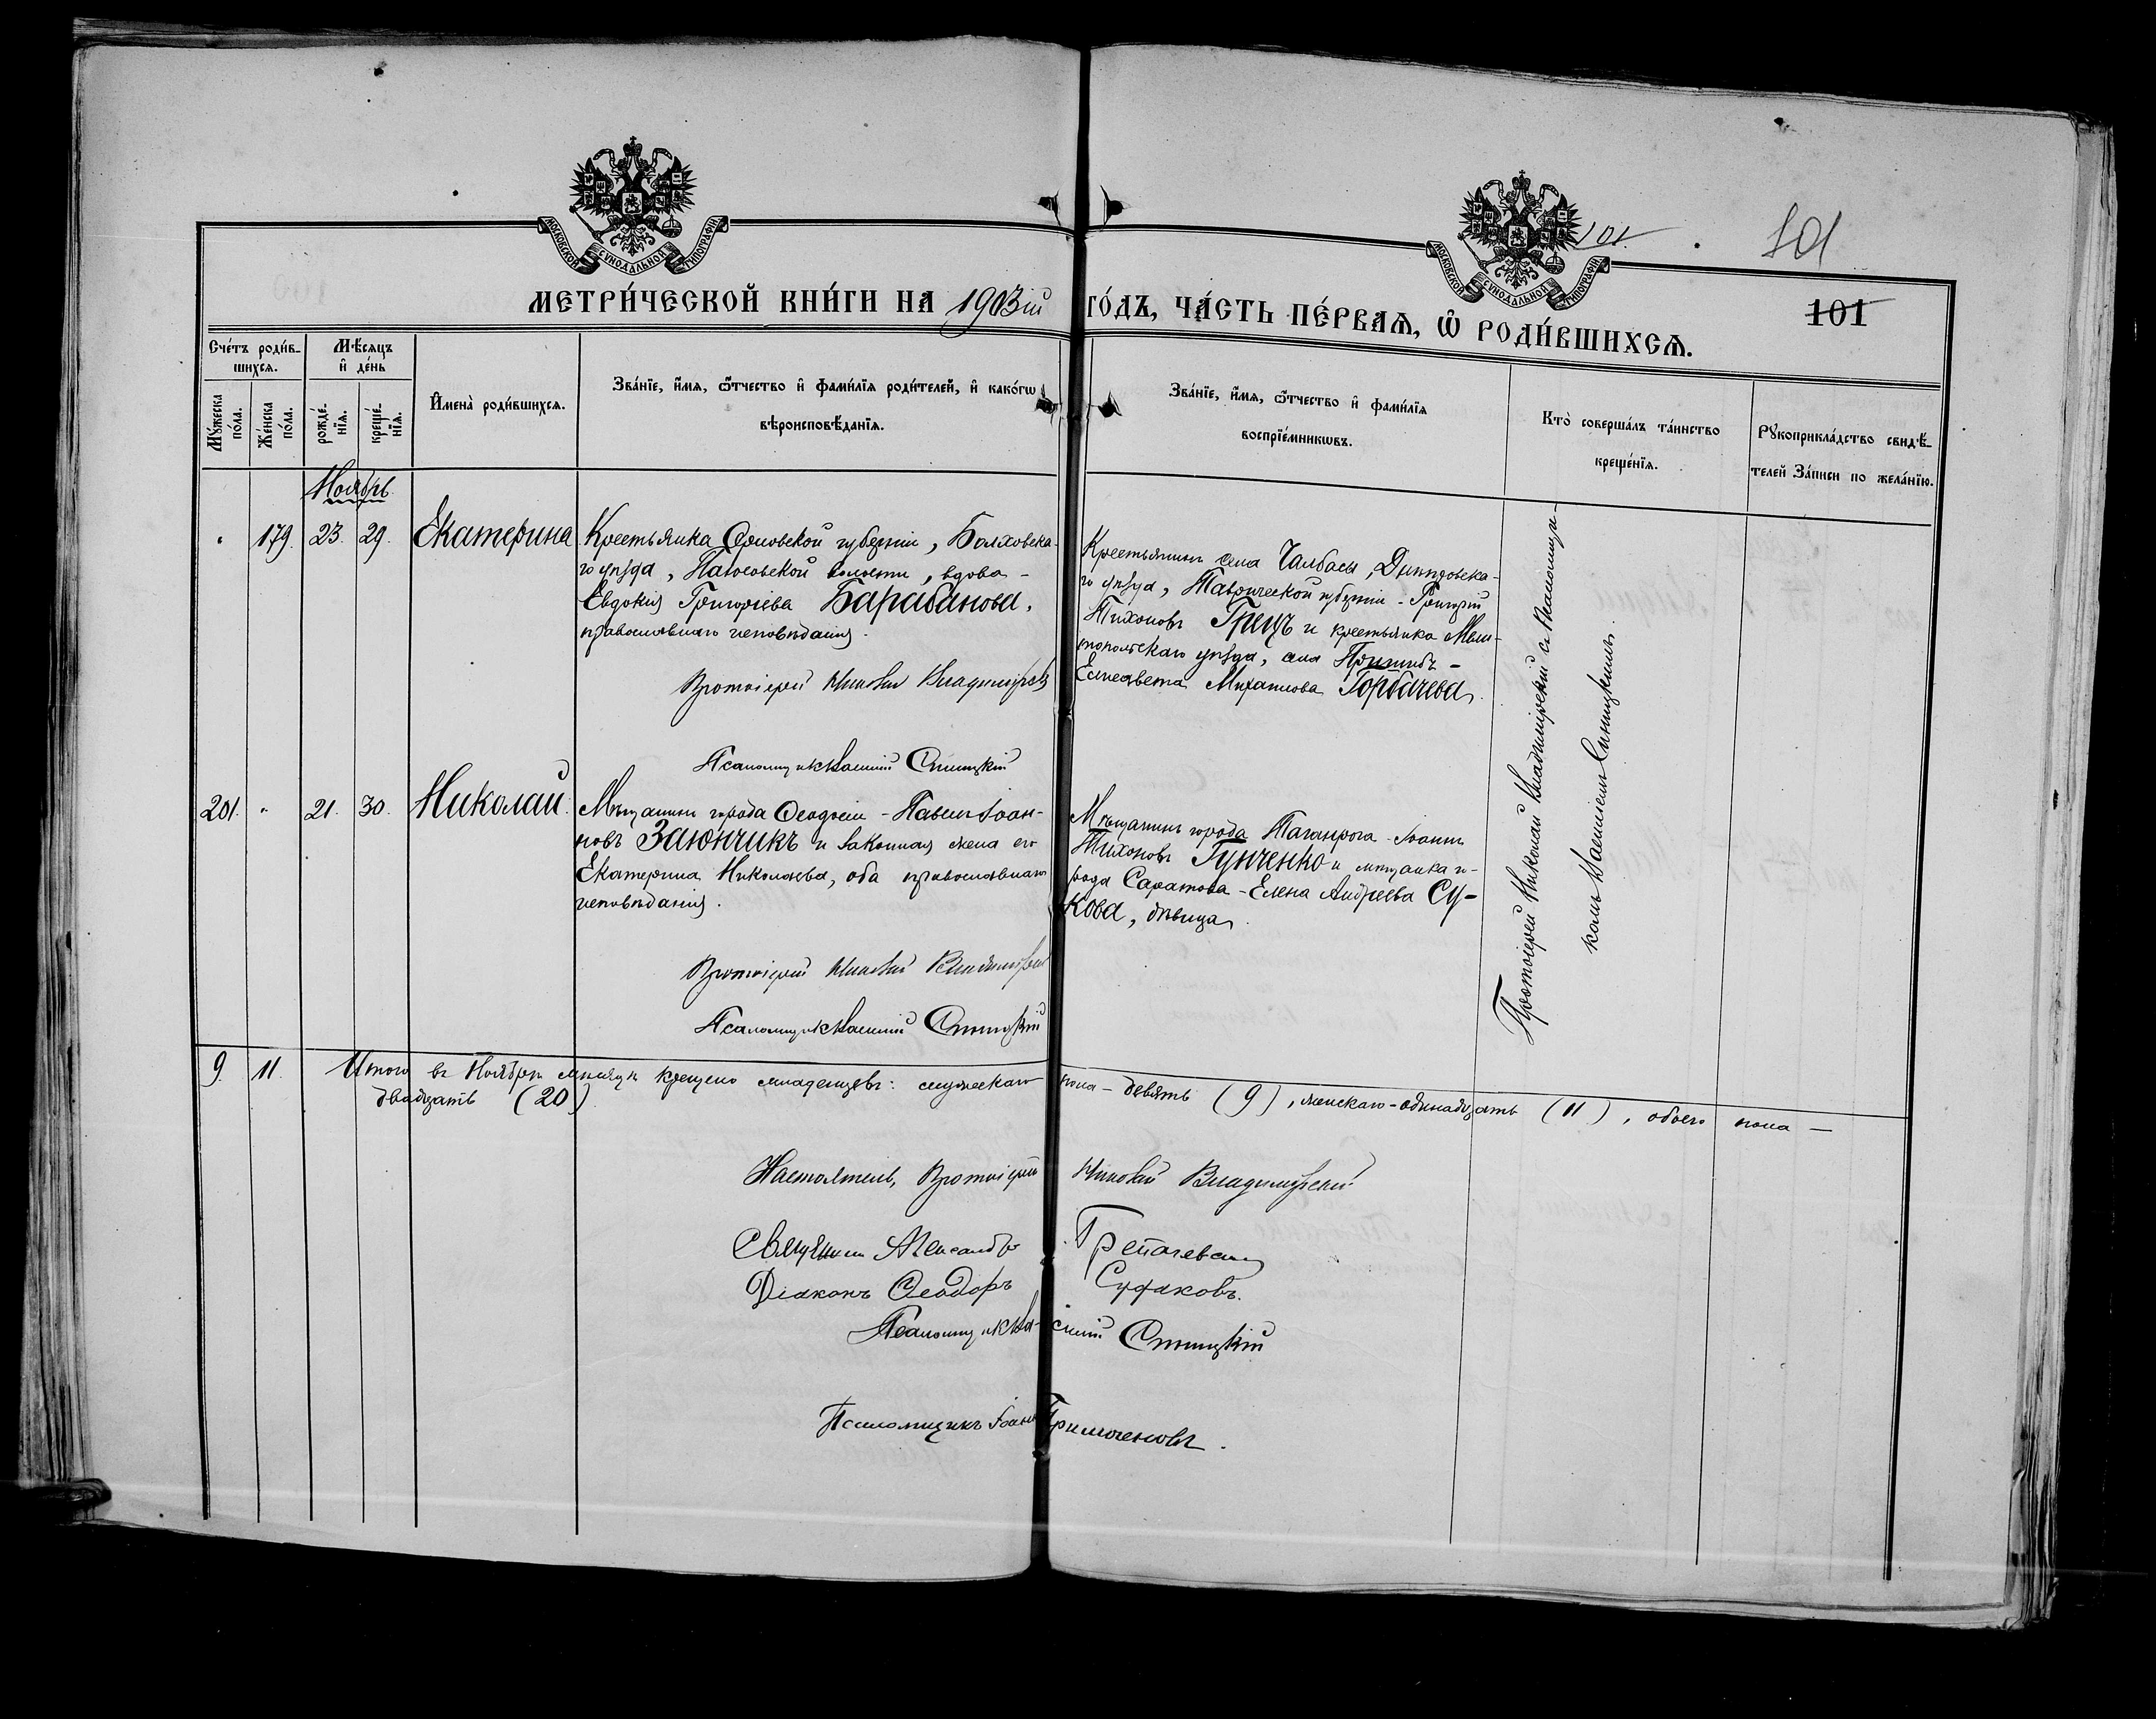 МОСКОВСКОЙ СѴНОДАЛЬНОЙ ТИПОГРАФІИ.
МОСКОВСКОЙ СѴНОДАЛЬНОЙ ТИПОГРАФІИ.
101.
101
101
МЕТРИ́ЧЕСКОЙ КНИ́ГИ НА 1903ій ГО́ДЪ, ЧА́СТЬ ПЕ́РВАѦ, Ѿ РОДИ́ВШИХСѦ.
Сче́тъ роди́в-
шихсѧ.
Мꙋжеска по́ла.
Же́нска по́ла.
Мѣ́сѧцъ и҆ де́нь
рожде́-
нїѧ.
креще́-
нїѧ.
И҆мена̀ роди́вшихсѧ.
Зва́нїе, и҆́мѧ, ѻ҆́тчество и҆ фами́лїѧ роди́телей, и҆ како́гѡ
вѣроисповѣ́данїѧ.
Зва́нїе, и҆́мѧ, ѻ҆́тчество и҆ фами́лїѧ
воспрїе́мникѡвъ.
Кто̀ соверша́лъ та́инство
креще́нїѧ.
Рꙋкоприкла́дство свидѣ́-
телей За́писи по жела́нїю.
Ноябрь.
" 179. 23. 29. Екатерина
Крестьянка Орловской губерніи, Болховска-
го уѣзда, волости, вдова -
Евдокія Григорьева Барабанова,
православнаго исповѣданія.
Протоіерей Николай Владимірскій
Псаломщикъ Василій Синицкій
Крестьянинъ села Чалбасы, Днѣпровска-
го уѣзда, Таврической губерніи - Григорій
Тихоновъ Грецъ и крестьянка Мели-
топольскаго уѣзда, села Пришибъ -
Елисавета Михаилова Горбачева.
Протоіерей Николай Владимірскій съ Псаломщи-
комъ Василіемъ Синицкимъ.
201. " 21. 30. Николай.
Мѣщанинъ города Ѳеодосіи - Павелъ Іоан-
новъ Заіончикъ и законная жена его
Екатерина Николаева, оба православнаго
исповѣданія.
Протоіерей Николай Владимірскій
Псаломщикъ Василій Синицкій
Мѣщанинъ города Таганрога Іоаннъ
Тихоновъ Гунченко и мѣщанка го-
рода Саратова - Елена Андреева Су-
кова, дѣвица.
9. 11. Итого въ Ноябрѣ мѣсяцѣ крещено младенцевъ: мужескаго пола - девять (9), женскаго - одинадцать (11), обоего пола -
двадцать (20)
Настоятель, Протоіерей Николай Владимірскій
Священникъ Александръ
Діаконъ Ѳеодоръ Судаковъ.
Псаломщикъ Василій Синицкій
Псаломщикъ Іоаннъ